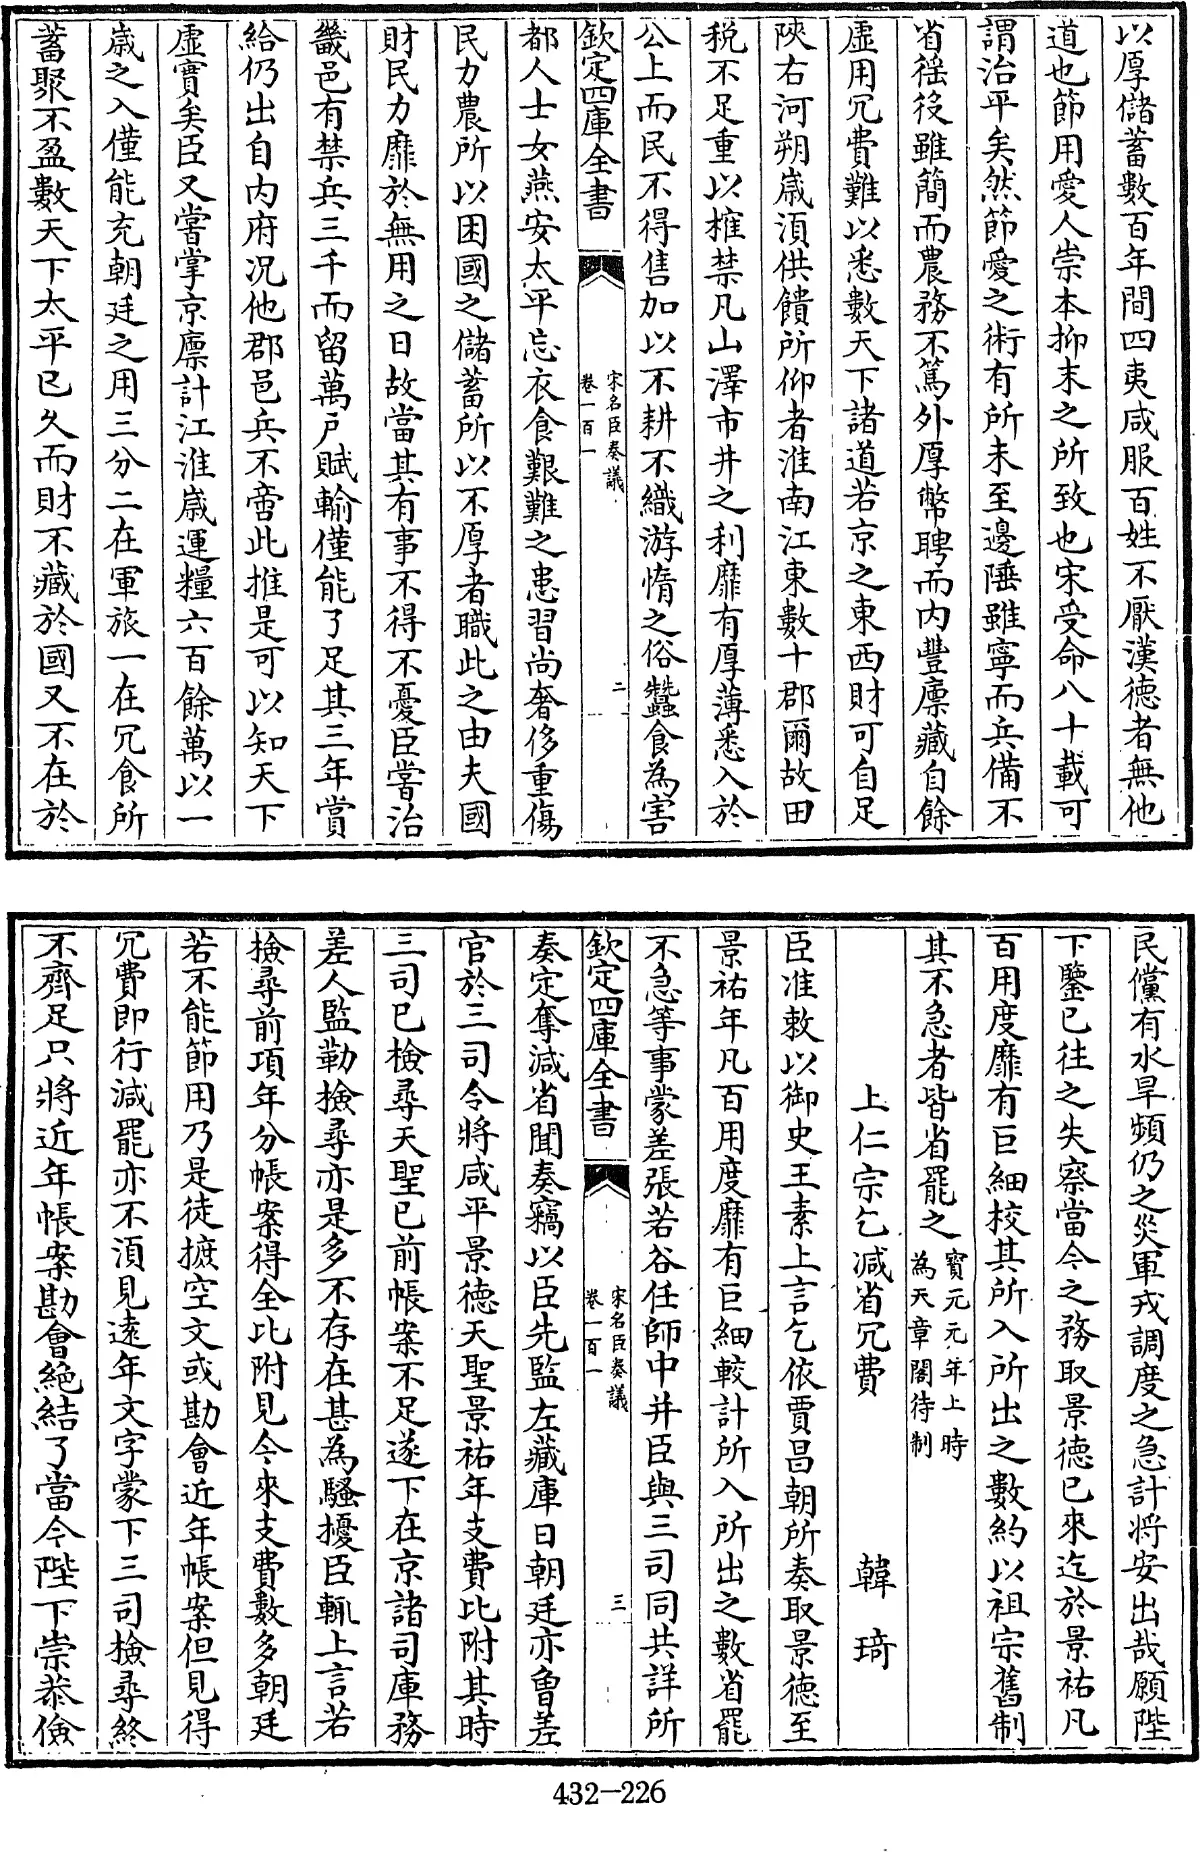 以厚儲蓄數百年間四夷咸服百姓不厭漢徳者無他
道也節用愛人崇本抑末之所致也宋受命八十載可
謂治平矣然節愛之術有所未至邊陲雖寧而兵備不
省徭役雖簡而農務不篤外厚幣聘而内豐廪藏自餘
虚用冗費難以悉數天下諸道若京之東西財可自足
陜右河朔嵗湏供饋所仰者淮南江東數十郡爾故田
税不足重以榷禁凡山澤市井之利靡有厚薄悉入於
公上而民不得售加以不耕不織游惰之俗蠶食為害
欽定四庫全書
宋名臣奏議
卷一百一
二
都人士女燕安太平忘衣食艱難之患習尚奢侈重傷
民力農所以困國之儲蓄所以不厚者職此之由夫國
財民力靡於無用之日故當其有事不得不憂臣嘗治
畿邑有禁兵三千而留萬戸賦輸僅能了足其三年賞
給仍出自内府況他郡邑兵不啻此推是可以知天下
虚實矣臣又嘗掌京廪計江淮嵗運糧六百餘萬以一
嵗之入僅能充朝廷之用三分二在軍旅一在冗食所
蓄聚不盈數天下太平已久而財不藏於國又不在於
民儻有水旱頻仍之災軍戎調度之急計將安出哉願陛
下鑒已往之失察當今之務取景徳已來迄於景祐凡
百用度靡有巨細校其所入所出之數約以祖宗舊制
其不急者皆省罷之寳元元年上時
為天章閣待制
上仁宗乞減省冗費 韓琦
臣准敕以御史王素上言乞依賈昌朝所奏取景徳至
景祐年凡百用度靡有巨細較計所入所出之數省罷
不急等事蒙差張若谷任師中并臣與三司同共詳所
欽定四庫全書
宋名臣奏議
卷一百一
三
奏定奪減省聞奏竊以臣先監左藏庫日朝廷亦㑹差
官於三司令將咸平景徳天聖景祐年支費比附其時
三司已檢尋天聖已前帳案不足遂下在京諸司庫務
差人監勒檢尋亦是多不存在甚為騷擾臣輒上言若
檢尋前項年分帳案得全比附見今來支費數多朝廷
若不能節用乃是徒摭空文或勘會近年帳案但見得
冗費即行減罷亦不湏見遠年文字蒙下三司檢尋終
不齊足只將近年帳案勘會絶結了當今陛下崇恭儉
432—226